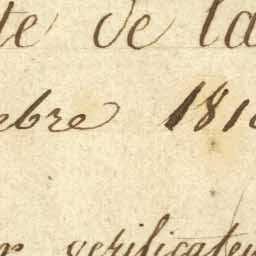 te de la
ebre 181
r verificateu